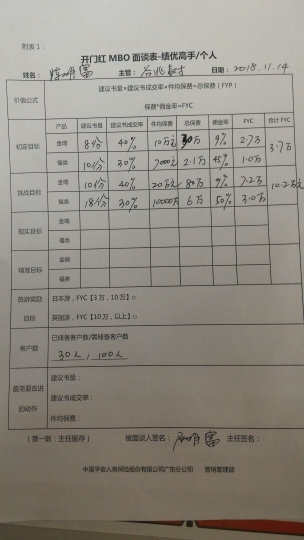 附表1：
开门红 MBO 面谈表-绩优高手/个人
姓名： 主管： 日期： 2018.11.14
价值公式 建议书量*建议书成交率*件均保费=总保费（FYP）
保费*佣金率=FYC
产品 建议书量 建议书成交率 件均保费 总保费 佣金率 FYC 合计FYC
初应目标 金瑞 8份 40% 10万元 30万 9% 2.7万 3.7万
福类 10份 30% 7000元 2.1万 45% 1.0万
挑战目标 金瑞 10份 40% 20万元 80万 9% 7.2万 10.2万元
福类 18份 30% 10000万 6万 50% 3.0万
现实目标 金瑞
福类
精准目标 金融
福类
旅游奖励 日本游，FYC【3万，10万】□
目标 英国游，FYC【10万，以上】□
客户数 已储备客户数/需储备客户数
30人，100人
最需要改进的动作 建议书量：
建议书成交率：
件均保费：
（第一联：主任留存） 被面谈人签名： 主任签名：
中国平安人寿保险股份有限公司广东分公司 营销管理部